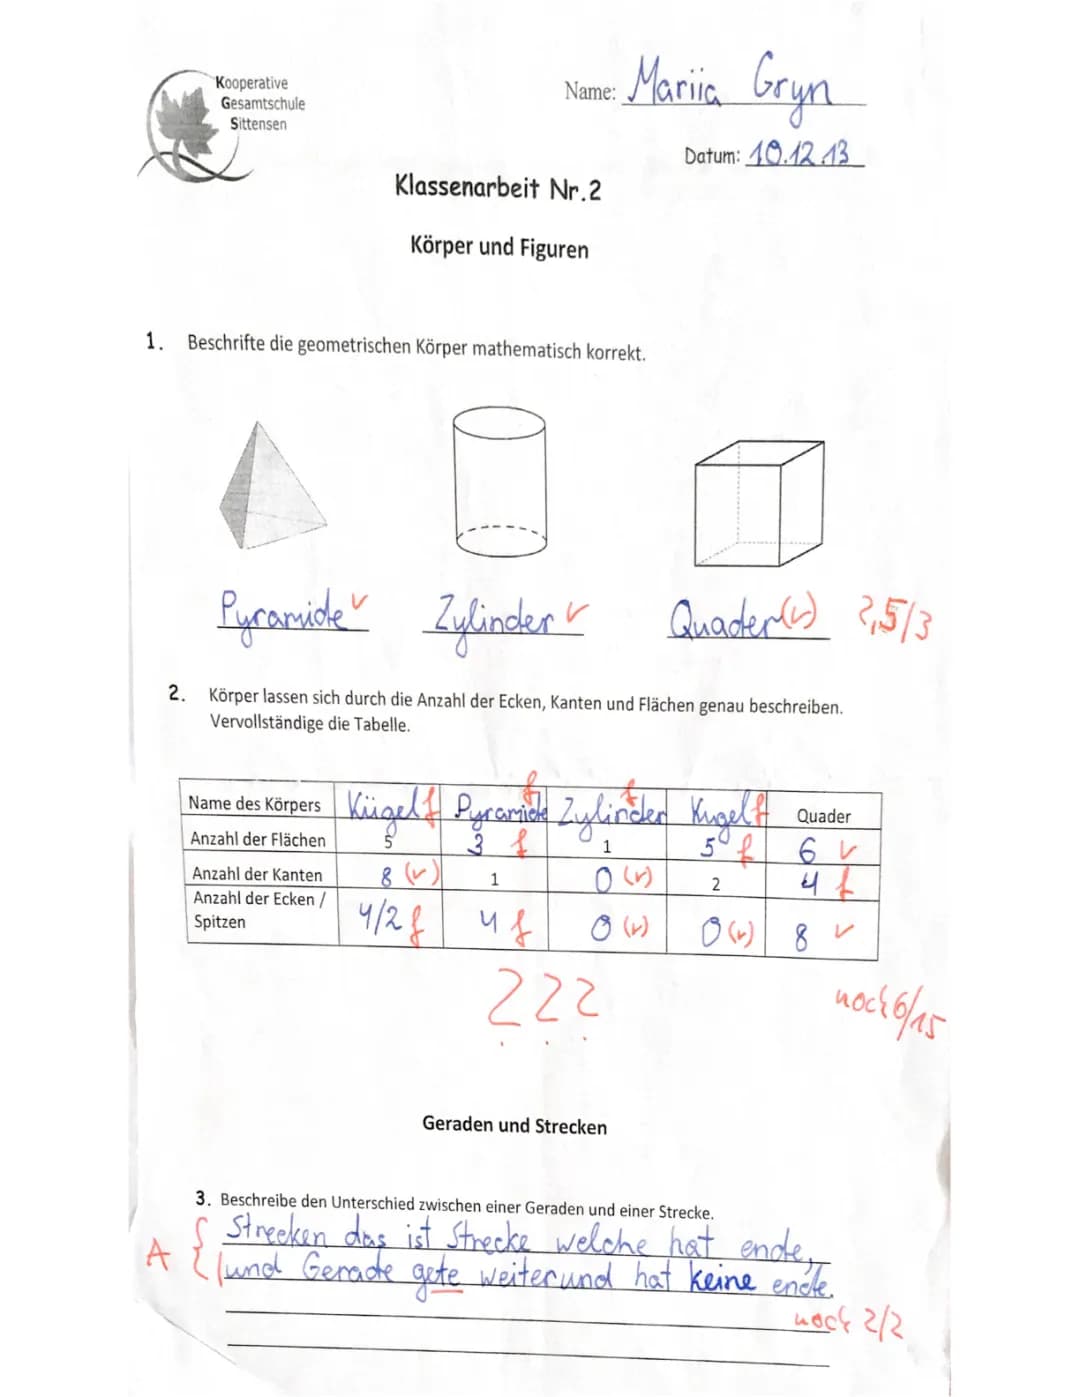 Kooperative
Gesamtschule
Sittensen
Name: Mariia Gryn
Datum: 10.12.13
Klassenarbeit Nr.2
Körper und Figuren
1. Beschrifte die geometrischen Körper mathematisch korrekt.
Pyramide ✓ Zylinder ✓ Quader (✓) 2,5/3
2. Körper lassen sich durch die Anzahl der Ecken, Kanten und Flächen genau beschreiben.
Vervollständige die Tabelle.
Name des Körpers Kügel f Pyramide f Zylinder f Kugel f Quader
Anzahl der Flächen 5 3 f 1 5 f 6 ✓
Anzahl der Kanten 8 (✓) 1 0 (✓) 2 4 f
Anzahl der Ecken /
Spitzen 4/2 f 4 f 0 (✓) 0 (✓) 8 ✓
? ? ?
noch 6/15
Geraden und Strecken
3. Beschreibe den Unterschied zwischen einer Geraden und einer Strecke.
Strecken das ist Strecke welche hat ende,
A { und Gerade gete weiter und hat keine ende.
noch 2/2